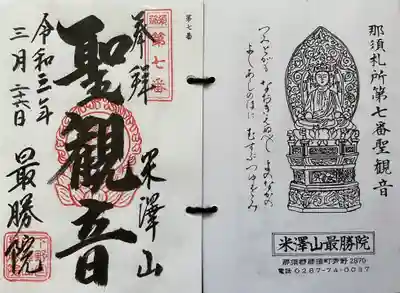 那須札所第七番聖観音
つみとがも よのなかの
よしあしのはに むすぶつゆ
米澤山最勝院
那須郡那須町芦野2870
電話 0287-74-0037
第七番
第七番
奉拝
米澤山
聖観音
令和三年
三月
最勝院